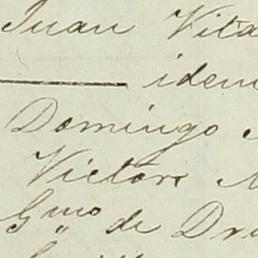 Juan Vita
idem
Domingo
Victor
Gmo de Dr